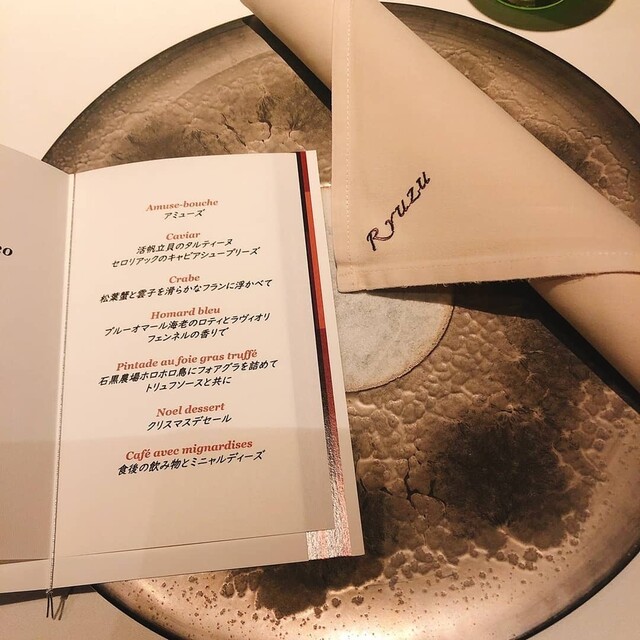 Amuse-bouche
アミューズ
Caviar
活帆立貝のタルティーヌ
セロリアックのキャビアシューブリーズ
Crabe
松葉蟹と雲子を滑らかなフランに浮かべて
Homard bleu
ブルーオマール海老のロティとラヴィオリ
フェンネルの香りで
Pintade au foie gras truffé
石黒農場ホロホロ鳥にフォアグラを詰めて
トリュフソースと共に
Noel dessert
クリスマスデセール
Café avec mignardises
食後の飲み物とミニャルディーズ
Ryuzu